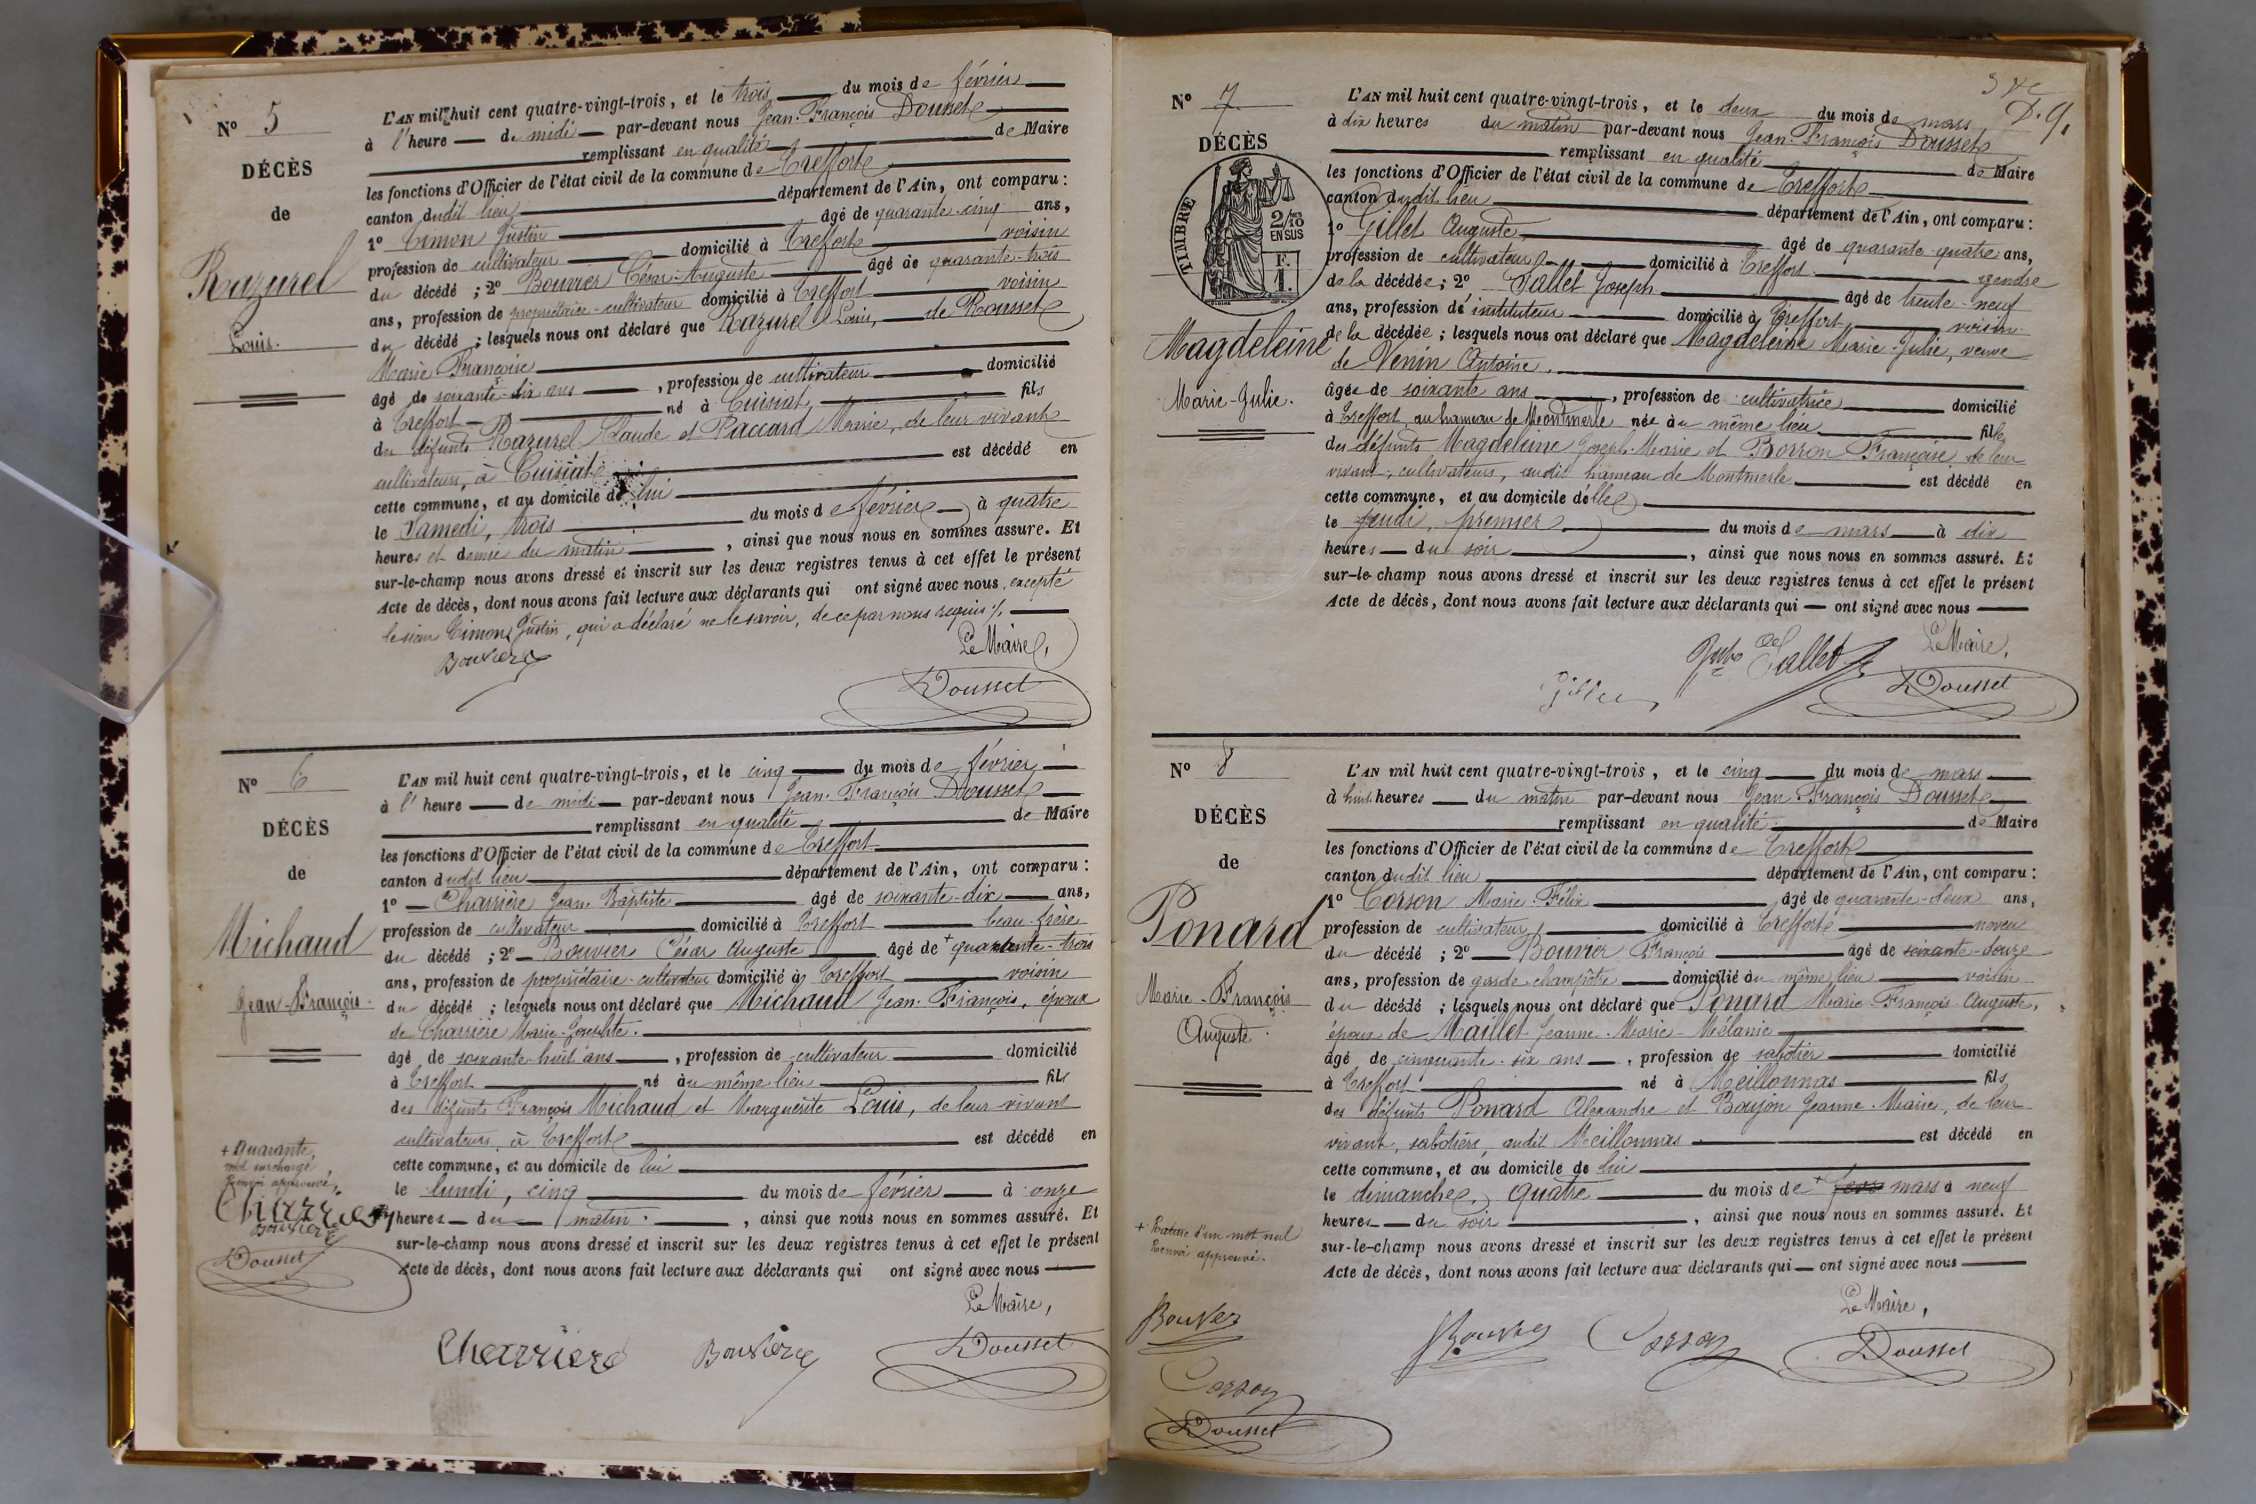 N° 5
DÉCÈS
de
Razurel
Louis.
L'AN mil huit cent quatre-vingt-trois, et le trois du mois de février
à l'heure de midi par-devant nous Jean-François Dousset
remplissant en qualité de Maire
les fonctions d'Officier de l'état civil de la commune de Treffort
canton dudit lieu département de l'Ain, ont comparu :
1° Timon Justin âgé de quarante-cinq ans,
profession de cultivateur domicilié à Treffort voisin
du décédé ; 2° Bouvier César-Auguste âgé de quarante-trois
ans, profession de propriétaire-cultivateur domicilié à Treffort voisin
du décédé ; lesquels nous ont déclaré que Razurel Louis, de Rousset
Marie Françoise
âgé de soixante-dix ans, profession de cultivateur domicilié
à Treffort né à Cuisiat, fils
de défunts Razurel Claude et Paccard Marie, de leur vivant
cultivateurs, à Cuisiat est décédé en
cette commune, et au domicile de lui
le Samedi, trois du mois de février à quatre
heures et demie du matin, ainsi que nous nous en sommes assuré. Et
sur-le-champ nous avons dressé et inscrit sur les deux registres tenus à cet effet le présent
Acte de décès, dont nous avons fait lecture aux déclarants qui ont signé avec nous, excepté
le sieur Timon Justin, qui a déclaré ne le savoir, de ce par nous requis ./.
Le Maire,
Bouvier
Dousset
N° 6
DÉCÈS
de
Michaud
Jean-François.
L'AN mil huit cent quatre-vingt-trois, et le cinq du mois de février
à l'heure de midi par-devant nous Jean-François Dousset
remplissant en qualité de Maire
les fonctions d'Officier de l'état civil de la commune de Treffort
canton dudit lieu département de l'Ain, ont comparu :
1° Charrière Jean-Baptiste âgé de soixante-dix ans,
profession de cultivateur domicilié à Treffort beau-frère
du décédé ; 2° Bouvier César Auguste âgé de + quarante-trois
ans, profession de propriétaire-cultivateur domicilié à Treffort voisin
du décédé ; lesquels nous ont déclaré que Michaud Jean-François, époux
de Charrière Marie-Josephte.
âgé de soixante-huit ans, profession de cultivateur domicilié
à Treffort né au même lieu fils
des défunts François Michaud et Marguerite Louis, de leur vivant
cultivateurs, à Treffort est décédé en
cette commune, et au domicile de lui
le lundi, cinq du mois de février à onze
heures du matin., ainsi que nous nous en sommes assuré. Et
sur-le-champ nous avons dressé et inscrit sur les deux registres tenus à cet effet le présent
Acte de décès, dont nous avons fait lecture aux déclarants qui ont signé avec nous
+ Quarante,
mot surchargé,
Renvoi approuvé,
Charrière
Bouvier
Dousset
Le Maire,
Charrière Bouvier Dousset
D. 9.
N° 7
DÉCÈS
TIMBRE
2/10 EN SUS
F. 1.
Magdeleine
Marie-Julie.
L'AN mil huit cent quatre-vingt-trois, et le deux du mois de mars
à dix heures du matin par-devant nous Jean-François Dousset
remplissant en qualité de Maire
les fonctions d'Officier de l'état civil de la commune de Treffort
canton dudit lieu département de l'Ain, ont comparu :
1° Gillet Auguste, âgé de quarante-quatre ans,
profession de cultivateur domicilié à Treffort gendre
de la décédée ; 2° Sallet Joseph âgé de trente-neuf
ans, profession d'instituteur domicilié à Treffort voisin
de la décédée ; lesquels nous ont déclaré que Magdeleine Marie-Julie, veuve
de Venin Antoine.
âgée de soixante ans, profession de cultivatrice domicilié
à Treffort, au hameau de Montmerle née au même lieu fille
des défunts Magdeleine Joseph-Marie et Borron Françoise, de leur
vivant, cultivateurs, audit hameau de Montmerle est décédé en
cette commune, et au domicile d'elle
le jeudi, premier du mois de mars à dix
heures du soir, ainsi que nous nous en sommes assuré. Et
sur-le-champ nous avons dressé et inscrit sur les deux registres tenus à cet effet le présent
Acte de décès, dont nous avons fait lecture aux déclarants qui ont signé avec nous
Le Maire,
Gillet Sallet Dousset
N° 8
DÉCÈS
de
Ponard
Marie-François
Auguste.
L'AN mil huit cent quatre-vingt-trois, et le cinq du mois de mars
à huit heures du matin par-devant nous Jean-François Dousset
remplissant en qualité de Maire
les fonctions d'Officier de l'état civil de la commune de Treffort
canton dudit lieu département de l'Ain, ont comparu :
1° Corson Marie-Félix âgé de quarante-deux ans,
profession de cultivateur, domicilié à Treffort neveu
du décédé ; 2° Bouvier François âgé de soixante-douze
ans, profession de garde-champêtre domicilié au même lieu voisin
du décédé ; lesquels nous ont déclaré que Ponard Marie François Auguste,
époux de Maillet Jeanne-Marie-Mélanie
âgé de cinquante-six ans, profession de sabotier domicilié
à Treffort né à Meillonnas fils
des défunts Ponard Alexandre et Boujon Jeanne-Marie, de leur
vivant, sabotiers, audit Meillonnas est décédé en
cette commune, et au domicile de lui
le dimanche, quatre du mois de + mars à neuf
heures du soir, ainsi que nous nous en sommes assuré. Et
sur-le-champ nous avons dressé et inscrit sur les deux registres tenus à cet effet le présent
Acte de décès, dont nous avons fait lecture aux déclarants qui ont signé avec nous
+ Rature d'un mot nul
Renvoi approuvé.
Bouvier
Corson
Dousset
Le Maire,
Bouvier Corson Dousset